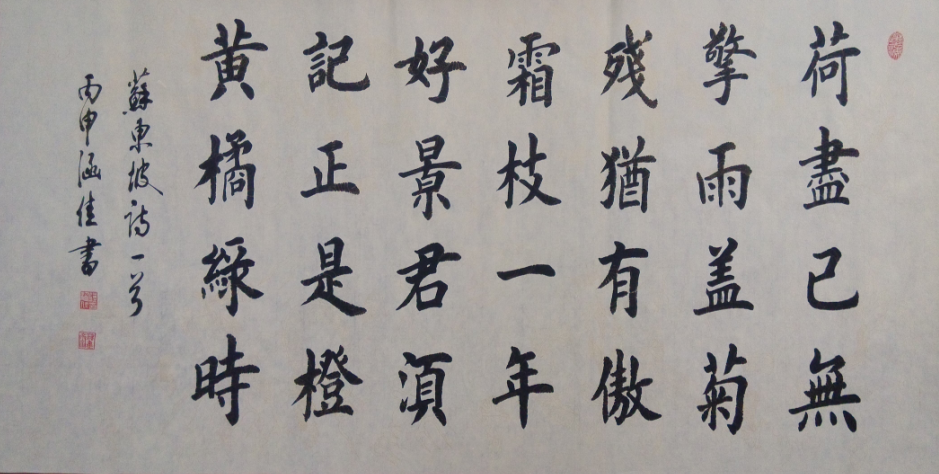 荷盡已無
擎雨盖菊
殘猶有傲
霜枝一年
好景君湏
記正是橙
黄橘緑時
蘇東坡詩一首
丙申涵佳書